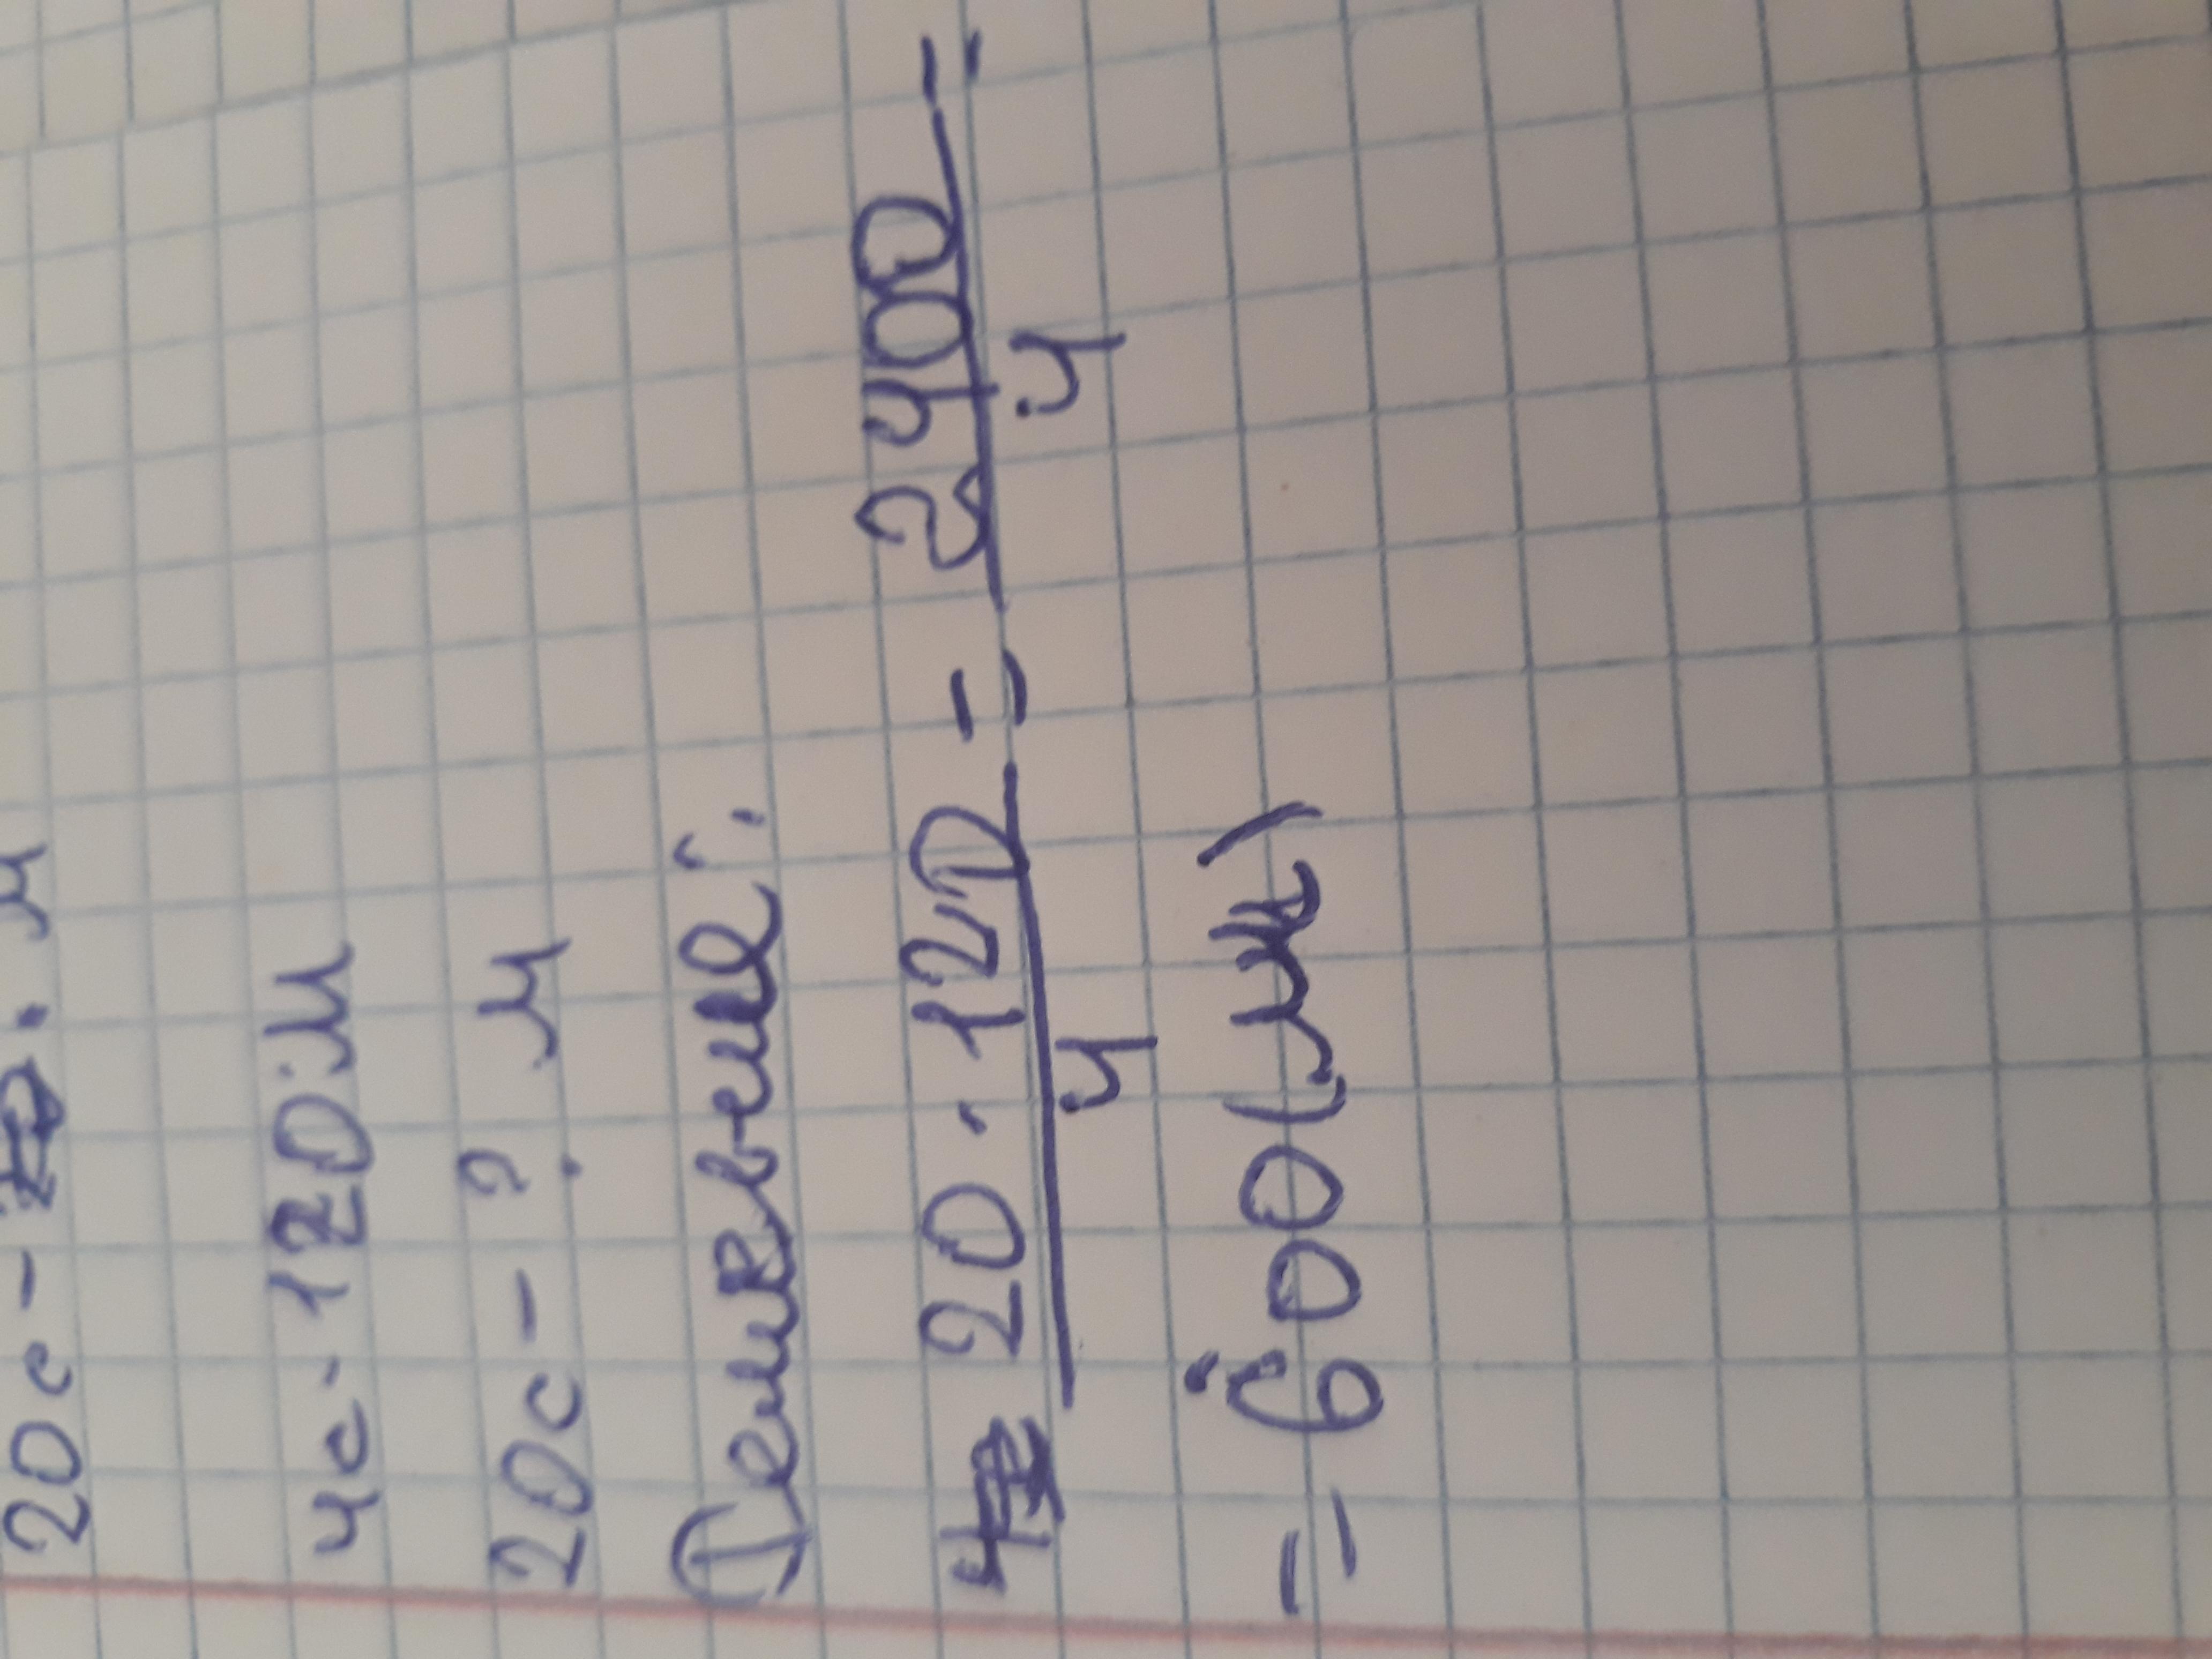 20с - . м
4с - 120 м
20с - ? м
Решение:
20 · 120 / 4 = 2400 / 4 =
= 600 (м)